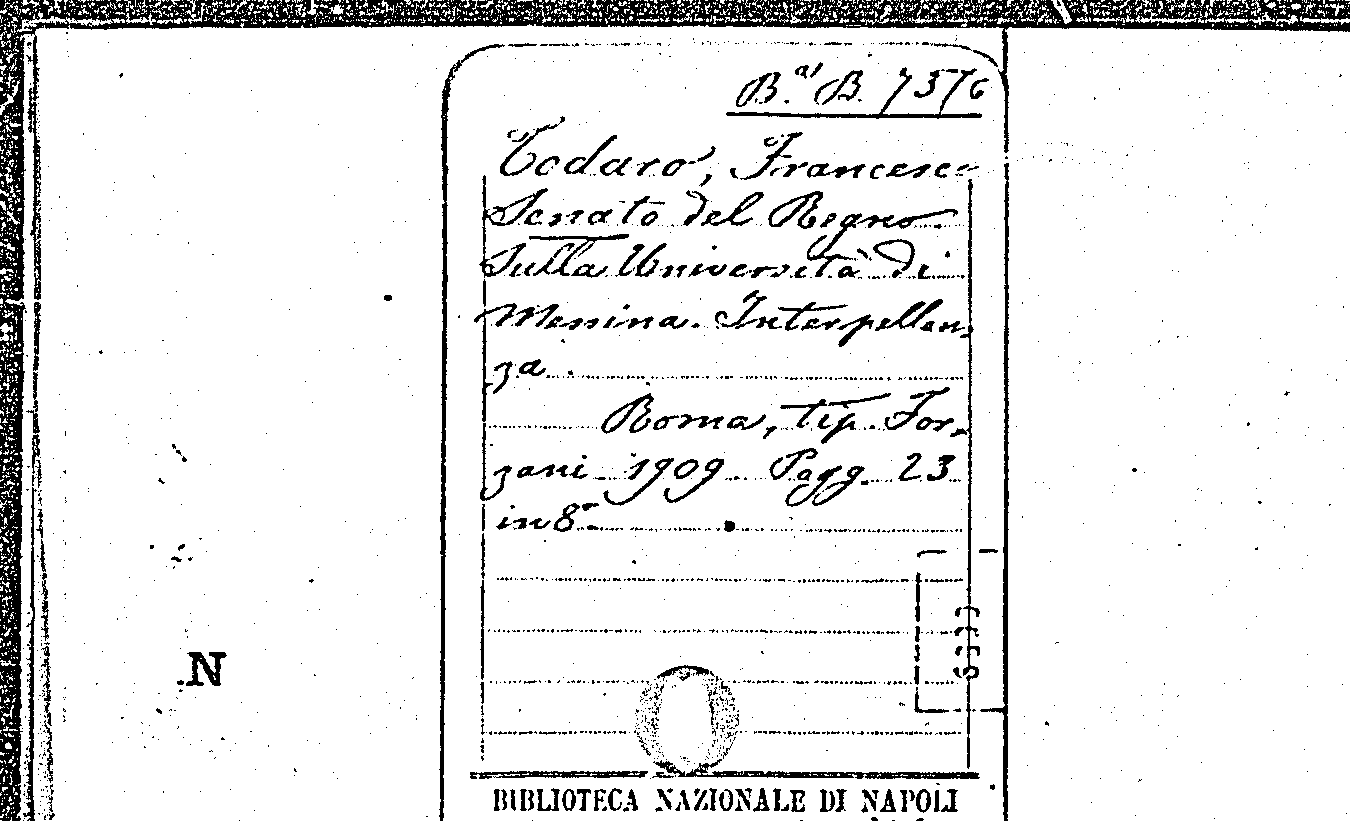 B.ª B. 7376
Todaro, Francesco
Senato del Regno.
Sulla Università di
Messina. Interpellan-
za.
Roma, tip. For-
zani 1909. Pagg. 23
in 8º
N
BIBLIOTECA NAZIONALE DI NAPOLI